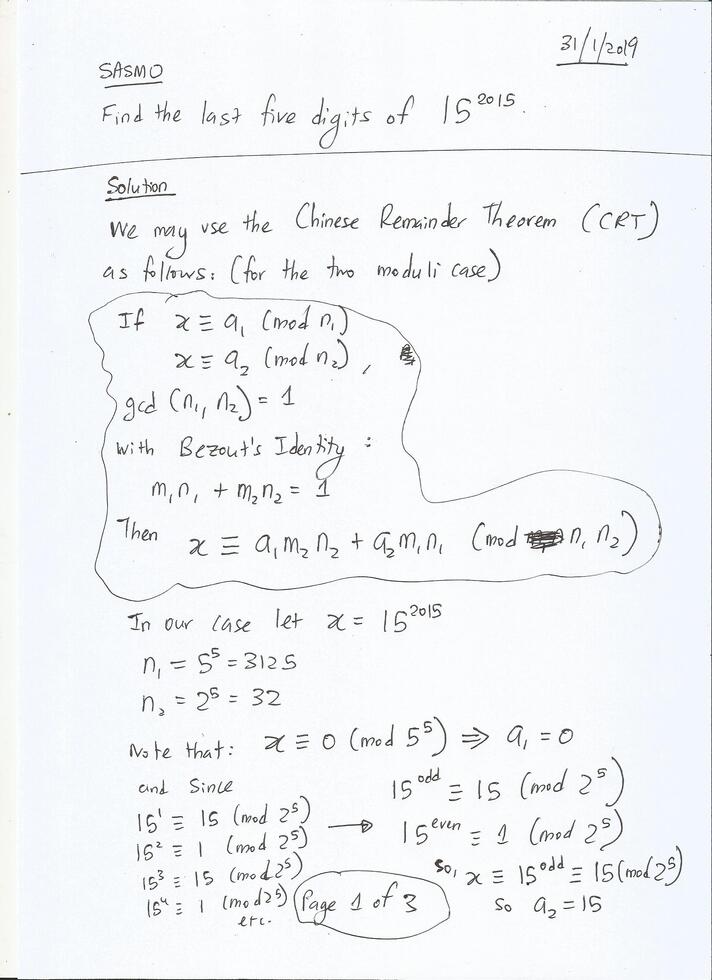 31/1/2019
SASMO
Find the last five digits of 15^2015.
Solution
We may use the Chinese Remainder Theorem (CRT)
as follows: (for the two moduli case)
If x ≡ a₁ (mod n₁)
x ≡ a₂ (mod n₂),
gcd (n₁, n₂) = 1
with Bezout's Identity:
m₁n₁ + m₂n₂ = 1
Then x ≡ a₁m₂n₂ + a₂m₁n₁ (mod n₁n₂)
In our case let x = 15^2015
n₁ = 5^5 = 3125
n₂ = 2^5 = 32
Note that: x ≡ 0 (mod 5^5) ⇒ a₁ = 0
and since
15^1 ≡ 15 (mod 2^5)
15^2 ≡ 1 (mod 2^5)
15^3 ≡ 15 (mod 2^5)
15^4 ≡ 1 (mod 2^5)
etc.
→
15^odd ≡ 15 (mod 2^5)
15^even ≡ 1 (mod 2^5)
So, x ≡ 15^odd ≡ 15 (mod 2^5)
So a₂ = 15
Page 1 of 3